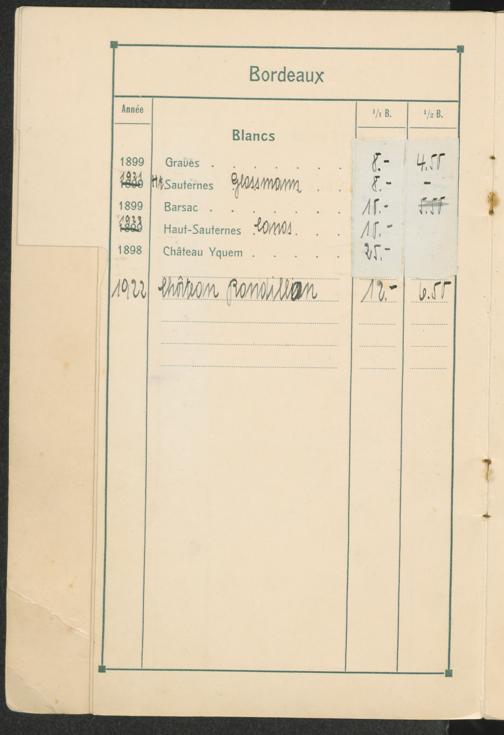 Bordeaux
Année 1/1 B. 1/2 B.
Blancs
1899 Graves . . . . . . 8.- 4.50
1931 1899 Ht Sauternes Glassmann . . 8.- -
1899 Barsac . . . . . . 15.- 5.50
1933 1899 Haut-Sauternes . . . 15.-
1898 Château Yquem . . . . 25.-
1922 Château 12.- 6.50